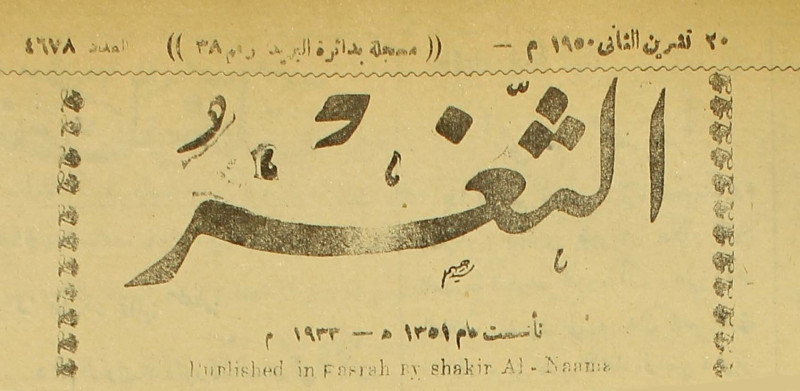 ٢٠ تشرين الثاني ١٩٥٠ م — (( مسجلة بدائرة البريد رقم ٣٨ )) العدد ٤٦٧٨
الثغر
رحيم
تأسست عام ١٣٥١ ه — ١٩٣٣ م
Published in Basrah By shakir Al - Naama